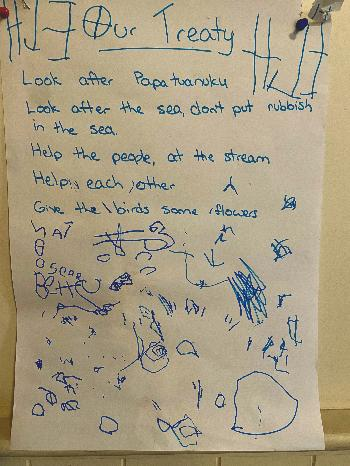 Our Treaty
Look after Papatuanuku
Look after the sea, don't put rubbish
in the sea.
Help the people, at the stream
Help each other
Give the birds some flowers